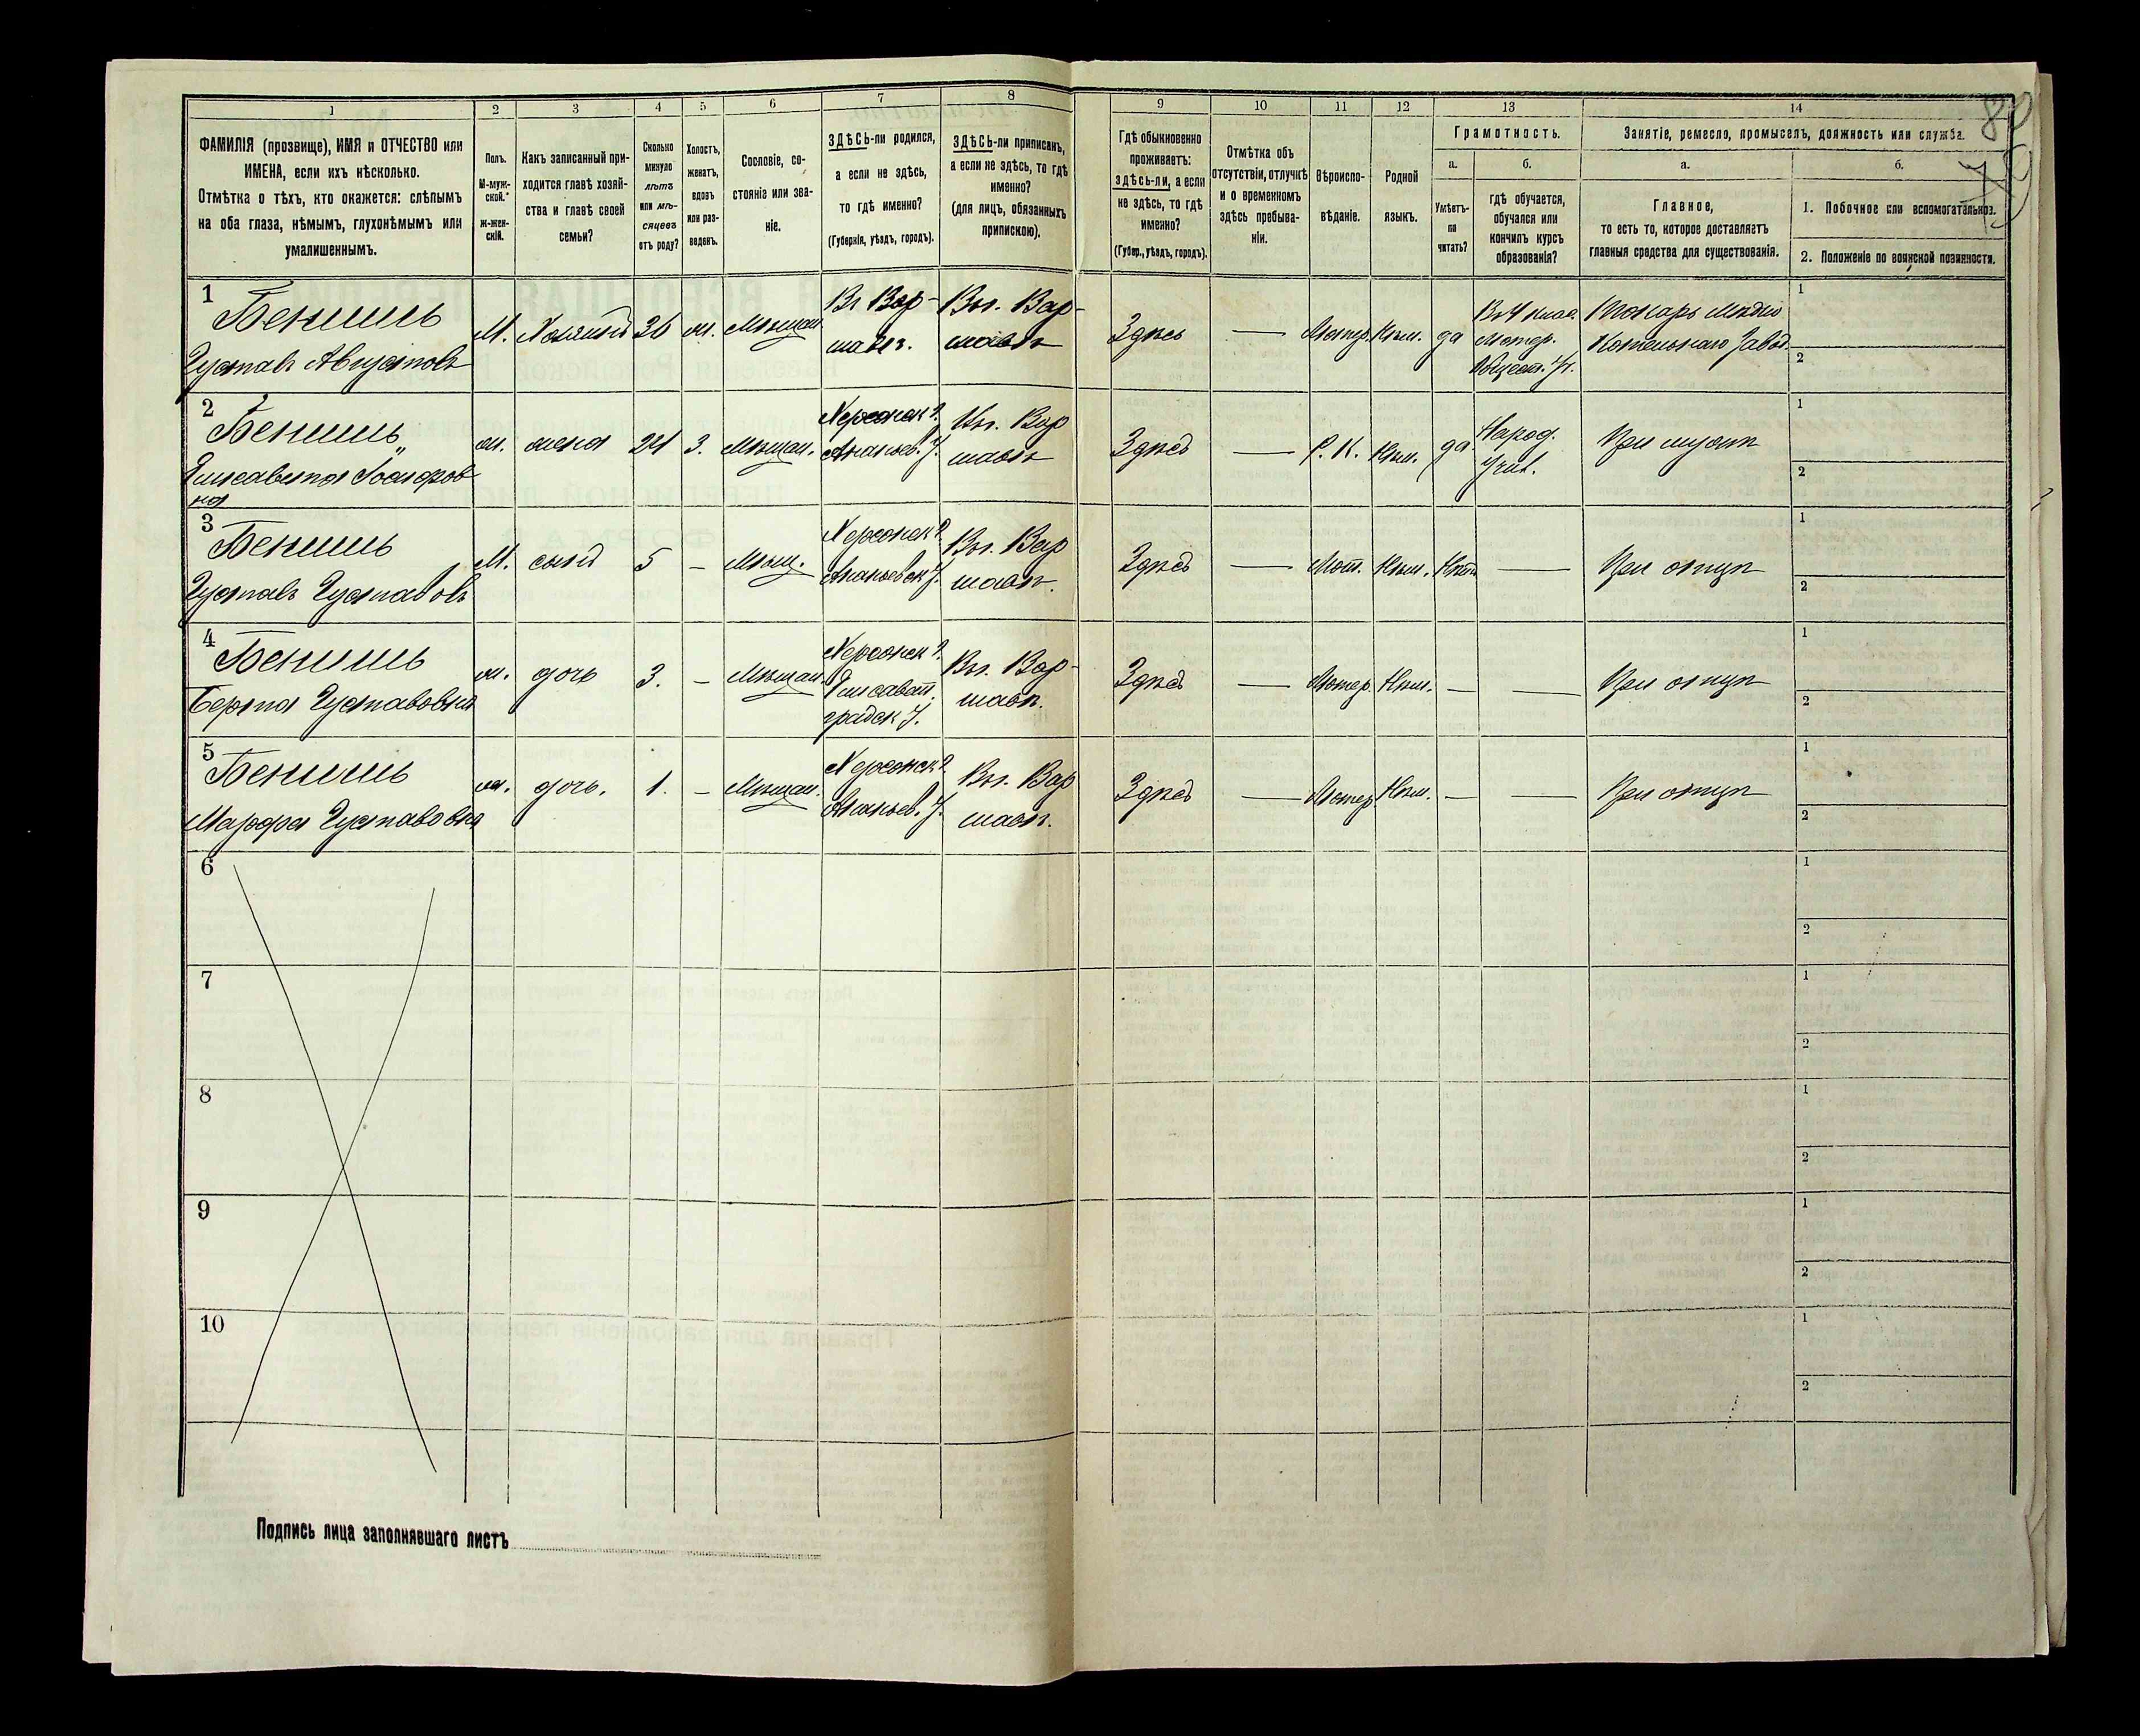 1 2 3 4 5 6 7 8 9 10 11 12 13 14
ФАМИЛІЯ (прозвище), ИМЯ и ОТЧЕСТВО или
ИМЕНА, если ихъ нѣсколько.
Отмѣтка о тѣхъ, кто окажется: слѣпымъ
на оба глаза, нѣмымъ, глухонѣмымъ или
умалишеннымъ.
Полъ.
М-муж-
ской.
ж-жен-
скій.
Какъ записанный при-
ходится главѣ хозяй-
ства и главѣ своей
семьи?
Сколько
минуло
лѣтъ
или мѣ-
сяцевъ
отъ роду?
Холостъ,
женатъ,
вдовъ
или раз-
веденъ.
Сословіе, со-
стояніе или зва-
ніе.
ЗДѢСЬ-ли родился,
а если не здѣсь,
то гдѣ именно?
(Губернія, уѣздъ, городъ).
ЗДѢСЬ-ли приписанъ,
а если не здѣсь, то гдѣ
именно?
(для лицъ, обязанныхъ
припискою).
Гдѣ обыкновенно
проживаетъ:
здѣсь-ли, а если
не здѣсь, то гдѣ
именно?
(Губер., уѣздъ, городъ).
Отмѣтка объ
отсутствіи, отлучкѣ
и о временномъ
здѣсь пребыва-
ніи.
Вѣроиспо-
вѣданіе.
Родной
языкъ.
Грамотность.
а.
Умѣетъ-
ли
читать?
б.
гдѣ обучается,
обучался или
кончилъ курсъ
образованія?
Занятіе, ремесло, промыселъ, должность или служба.
а.
Главное,
то есть то, которое доставляетъ
главныя средства для существованія.
б.
1. Побочное или вспомогательное.
2. Положеніе по воинской повинности.
1
Бенишъ
Густавъ Августовъ
М. Хозяинъ 36 ж. Мѣщан.
Въ Вар-
шавѣ.
Въ г. Вар-
шавѣ
Здѣсь — Лютер. Нѣм. да
Лютер.
Токарь Мѣдно
Котельнаго Завод.
1
2
2
Бенишъ
Елисавета Іосифов
на
ж. жена 24 З. Мѣщан.
Херсонск. г.
Ананьев. у.
Вар
шавѣ
Здѣсь — Р. К. Нѣм. да
Народ.
Учил.
При мужѣ
1
2
3
Бенишъ
Густавъ Густавовъ
М. сынъ 5 – Мѣщ.
Херсонск. г.
Ананьевск. у.
Въ г. Вар
шавѣ.
Здѣсь — Лют. Нѣм. Нѣтъ —
При отцѣ
1
2
4
Бенишъ
Берта Густавовна
ж. дочь 3. – Мѣщан.
Херсонск. г.
Елисавет.
градск. у.
Въ г. Вар-
шавѣ.
Здѣсь — Лютер. Нѣм. — —
При отцѣ
1
2
5
Бенишъ
Марфа Густавовна
ж. дочь. 1. – Мѣщан.
Херсонск. г.
Ананьев. у.
Въ г. Вар
шавѣ.
Здѣсь — Лютер Нѣм. — —
При отцѣ
1
2
6
1
2
7
1
2
8
1
2
9
1
2
10
1
2
Подпись лица заполнявшаго листъ